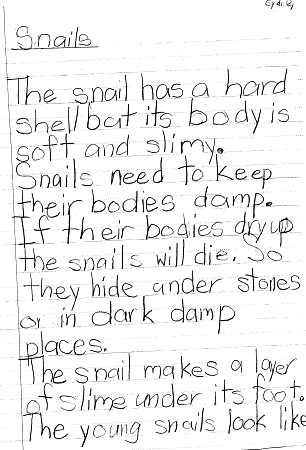 Snails
The snail has a hard
shell but its body is
soft and slimy.
Snails need to keep
their bodies damp.
If their bodies dry up
the snails will die. So
they hide under stones
or in dark damp
places.
The snail makes a layer
of slime under its foot.
The young snails look like